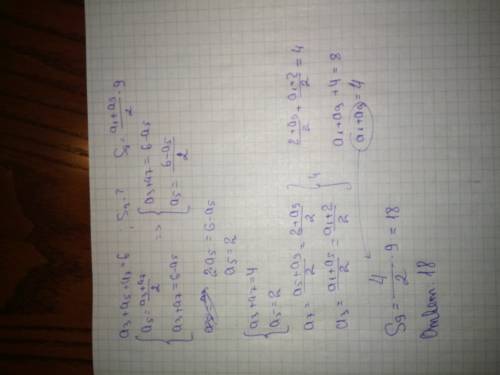 a₃+a₅+a₇=6 ; S₉=? S₉=(a₁+a₉)/2 · 9
{ a₅=(a₃+a₇)/2
{ a₃+a₇=6-a₅
=> { a₃+a₇=6-a₅
{ a₅=(6-a₅)/2
2a₅=6-a₅
a₅=2
{ a₃+a₇=4
{ a₅=2
a₇=(a₅+a₉)/2=(2+a₉)/2
a₃=(a₁+a₅)/2=(a₁+2)/2
} 4
(2+a₉)/2+(a₁+2)/2=4
a₁+a₉+4=8
a₁+a₉=4
S₉=4/2·9=18
Ответ 18